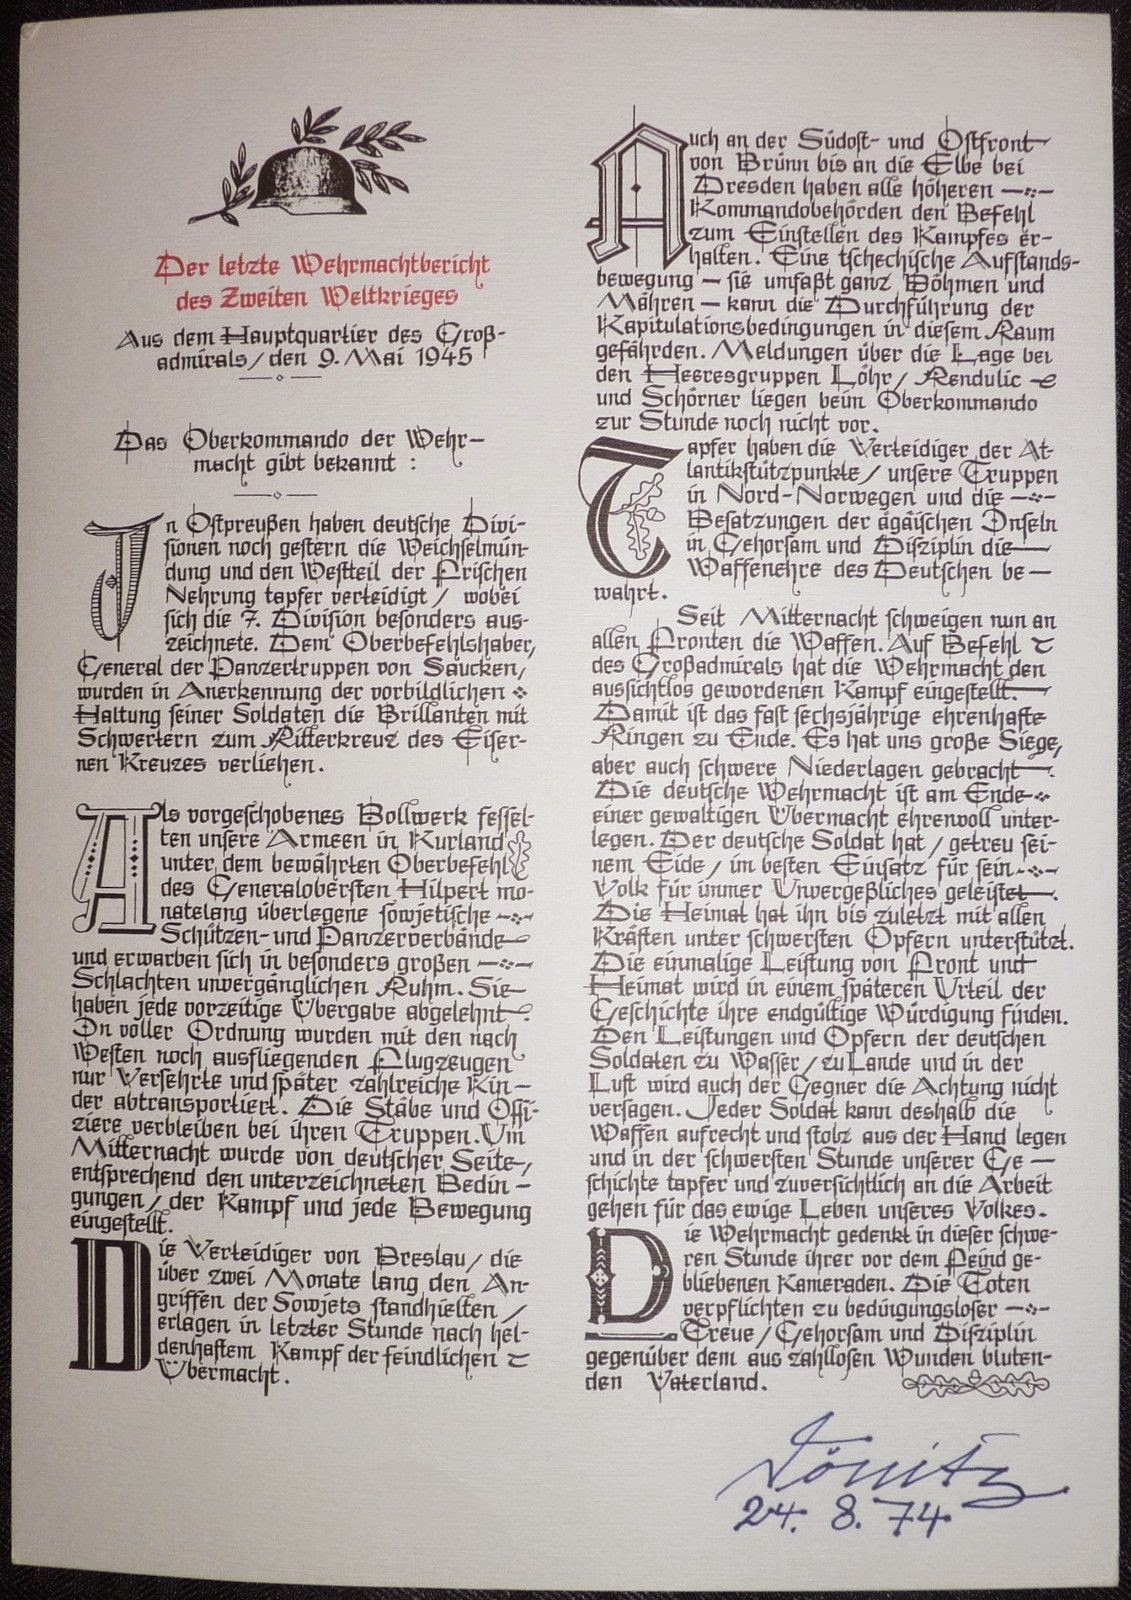 Der letzte Wehrmachtbericht
des Zweiten Weltkrieges
Aus dem Hauptquartier des Groß-
admirals/den 9. Mai 1945
Das Oberkommando der Wehr-
macht gibt bekannt :
In Ostpreußen haben deutsche Divi-
sionen noch gestern die Weichselmün-
dung und den Westteil der Frischen
Nehrung tapfer verteidigt/ wobei
sich die 7. Division besonders aus-
zeichnete. Dem Oberbefehlshaber,
General der Panzertruppen von Saucken/
wurden in Anerkennung der vorbildlichen
Haltung seiner Soldaten die Brillanten mit
Schwertern zum Ritterkreuz des Eiser-
nen Kreuzes verliehen.
Als vorgeschobenes Bollwerk fessel-
ten unsere Armeen in Kurland
unter dem bewährten Oberbefehl
des Generalobersten Hilpert mo-
natelang überlegene sowjetische
Schützen- und Panzerverbände
und erwarben sich in besonders großen
Schlachten unvergänglichen Ruhm. Sie
haben jede vorzeitige Übergabe abgelehnt.
In voller Ordnung wurden mit den nach
Westen noch ausfliegenden Flugzeugen
nur Versehrte und später zahlreiche Kin-
der abtransportiert. Die Stäbe und Offi-
ziere verbleiben bei ihren Truppen. Um
Mitternacht wurde von deutscher Seite/
entsprechend den unterzeichneten Bedin-
gungen/ der Kampf und jede Bewegung
eingestellt.
Die Verteidiger von Breslau/ die
über zwei Monate lang den An-
griffen der Sowjets standhielten/
erlagen in letzter Stunde nach hel-
denhaftem Kampf der feindlichen
Übermacht.
Auch an der Südost- und Ostfront
von Brünn bis an die Elbe bei
Dresden haben alle höheren
Kommandobehörden den Befehl
zum Einstellen des Kampfes er-
halten. Eine tschechische Aufstands-
bewegung – sie umfaßt ganz Böhmen und
Mähren – kann die Durchführung der
Kapitulationsbedingungen in diesem Raum
gefährden. Meldungen über die Lage bei
den Heeresgruppen Löhr/ Rendulic
und Schörner liegen beim Oberkommando
zur Stunde noch nicht vor.
Tapfer haben die Verteidiger der At-
lantikstützpunkte/ unsere Truppen
in Nord-Norwegen und die
Besatzungen der ägäischen Inseln
in Gehorsam und Disziplin die
Waffenehre des Deutschen be-
wahrt.
Seit Mitternacht schweigen nun an
allen Fronten die Waffen. Auf Befehl
des Großadmirals hat die Wehrmacht den
aussichtlos gewordenen Kampf eingestellt.
Damit ist das fast sechsjährige ehrenhafte
Ringen zu Ende. Es hat uns große Siege,
aber auch schwere Niederlagen gebracht.
Die deutsche Wehrmacht ist am Ende
einer gewaltigen Übermacht ehrenvoll unter-
legen. Der deutsche Soldat hat/ getreu sei-
nem Eide/ im besten Einsatz für sein
Volk für immer Unvergeßliches geleistet.
Die Heimat hat ihn bis zuletzt mit allen
Kräften unter schwersten Opfern unterstützt.
Die einmalige Leistung von Front und
Heimat wird in einem späteren Urteil der
Geschichte ihre endgültige Würdigung finden.
Den Leistungen und Opfern der deutschen
Soldaten zu Wasser/ zu Lande und in der
Luft wird auch der Gegner die Achtung nicht
versagen. Jeder Soldat kann deshalb die
Waffen aufrecht und stolz aus der Hand legen
und in der schwersten Stunde unserer Ge-
schichte tapfer und zuversichtlich an die Arbeit
gehen für das ewige Leben unseres Volkes.
Die Wehrmacht gedenkt in dieser schwe-
ren Stunde ihrer vor dem Feind ge-
bliebenen Kameraden. Die Toten
verpflichten zu bedingungsloser
Treue/ Gehorsam und Disziplin
gegenüber dem aus zahllosen Wunden bluten-
den Vaterland.
Dönitz
24. 8. 74